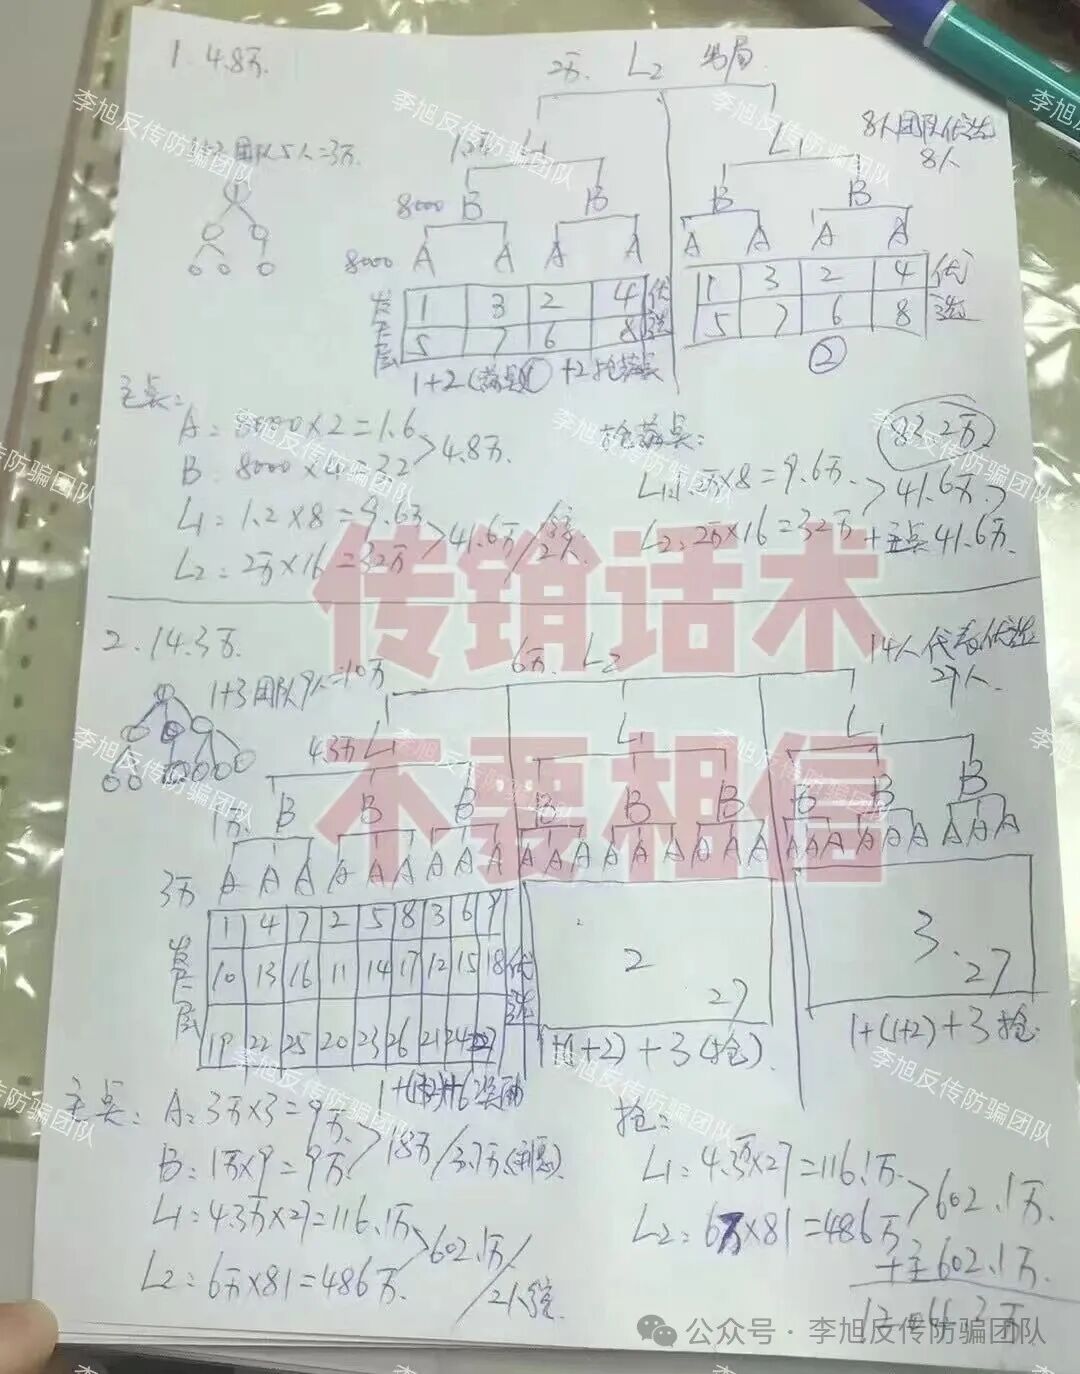 1. 4.8万.
2万. L2 出局
8人团队优选
8人
1+2团队5人=3万.
L1
8000 B B B B
8000 A A A A A A A A
发展层
1 3 2 4 优
5 7 6 8 选
1 3 2 4 优
5 7 6 8 选
②
主桌:
A: 8000×2=1.6
B: 8000×4=3.2
>4.8万.
L1: 1.2×8=9.6万
L2: 2万×16=32万
>41.6万/
抢落桌:
83.2万
L1: 1.2万×8=9.6万.
L2: 2万×16=32万
>41.6万.
+主桌41.6万.
传销话术
不要相信
2. 14.3万.
6万. L2
14人代表优选
27人.
1+3团队9人=10万
4.3万 L1 L1 L1
1万. B B B B B B B B B
3万 A A A A A A A A A A A A A A A A A A A A A A A A A A A
发展层
1 4 7 2 5 8 3 6 9
10 13 16 11 14 17 12 15 18
19 22 25 20 23 26 21 24 27
优选
2
27
3.
27
1+(1+2)+3(抢).
1+(1+2)+3抢
主桌:
A: 3万×3=9万.
B: 1万×9=9万.
>18万/3.7万
L1: 4.3万×27=116.1万
L2: 6万×81=486万.
>602.1万/
抢:
L1: 4.3万×27=116.1万.
L2: 6万×81=486万
>602.1万.
+主602.1万.
公众号 · 李旭反传防骗团队
李旭反传防骗团队